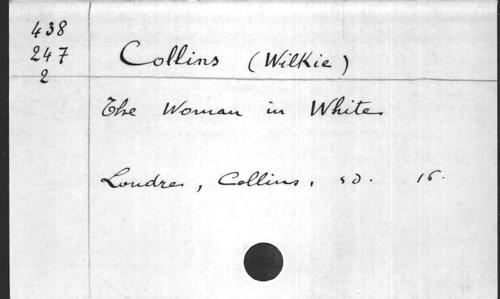 438
247
2
Collins (Wilkie)
The Woman in White
Londres, Collins, s.d. 16.